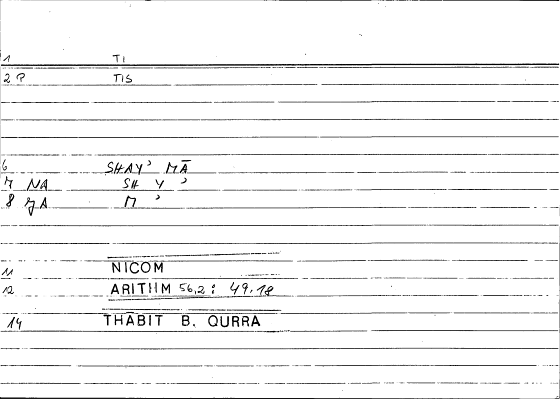 1 TI
2 P TIS
6 SHAY' MĀ
7 NA SH Y '
8 JA M '
11 NICOM
12 ARITHM 56,2: 49,18
14 THĀBIT B. QURRA